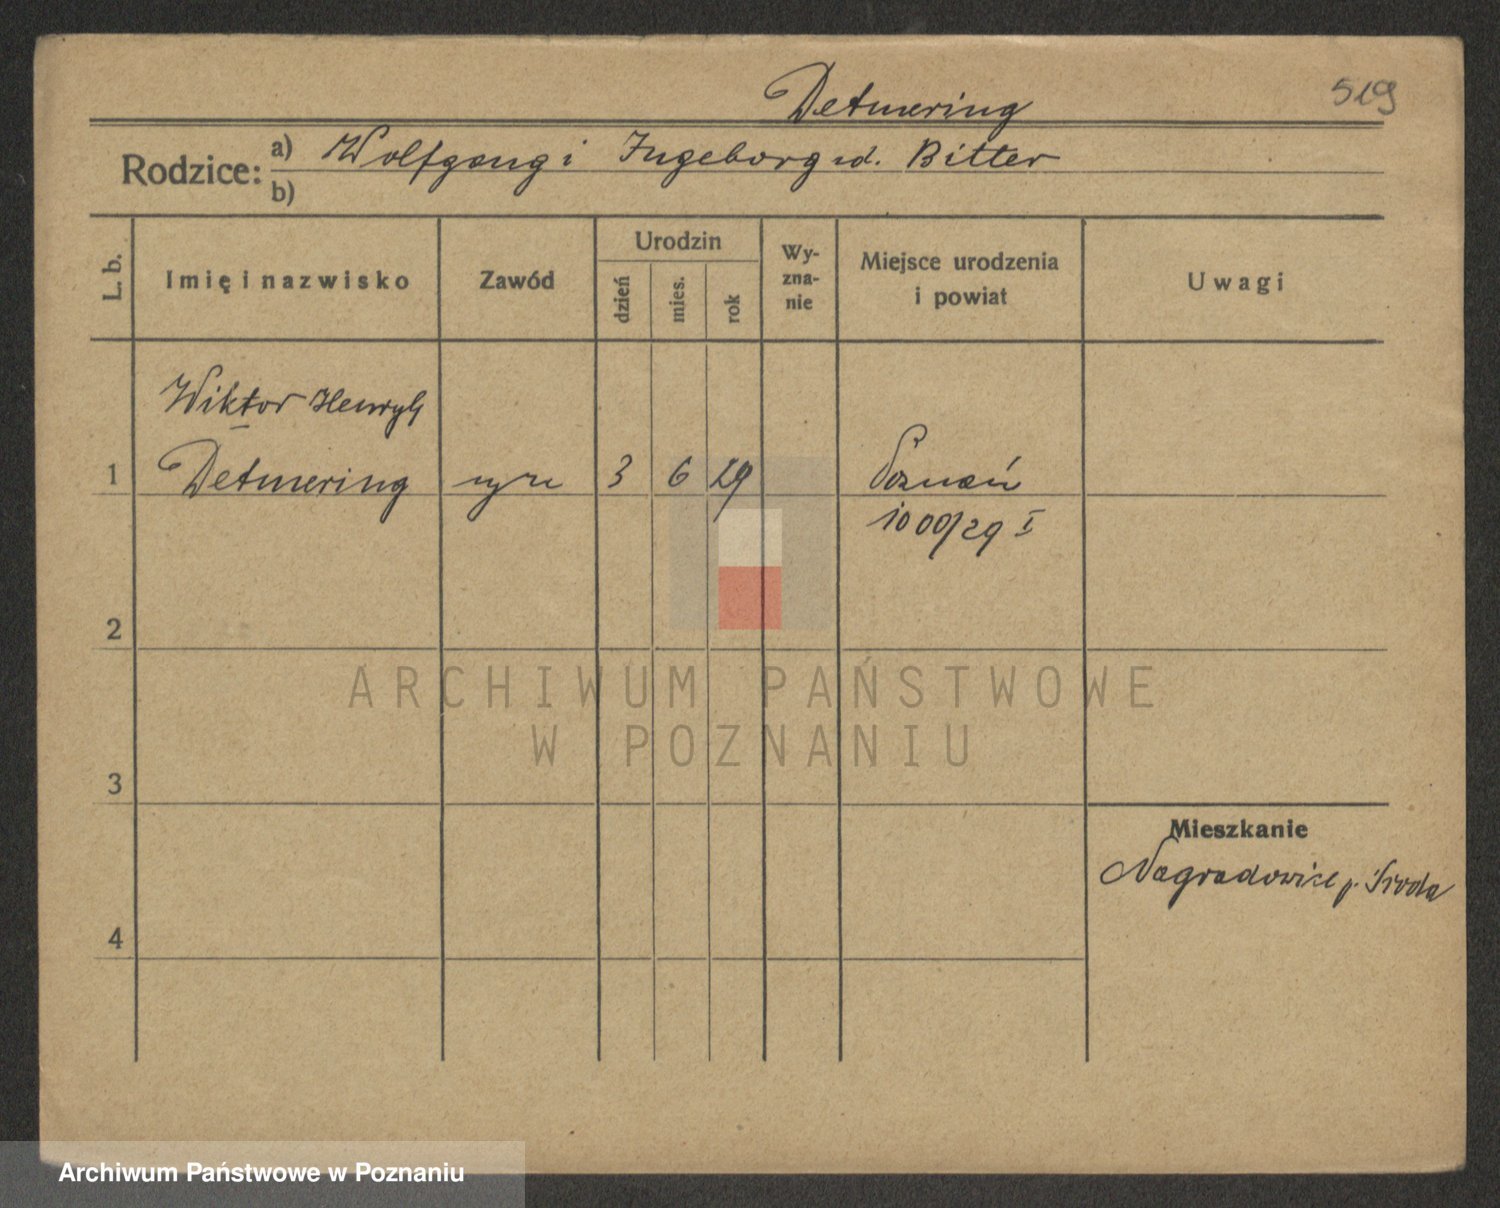 Detmering
519
Rodzice: a) Wolfgang i Ingeborg zd. Bitter
b)
L. b.
Imię i nazwisko
Zawód
Urodzin
dzień
mies.
rok
Wy-
zna-
nie
Miejsce urodzenia
i powiat
Uwagi
Wiktor Henryk
1 Detmering 3 6 29 Poznań
1000/29 I
2
ARCHIWUM PAŃSTWOWE
W POZNANIU
3
Mieszkanie
Nagradowice p. Środa
4
Archiwum Państwowe w Poznaniu